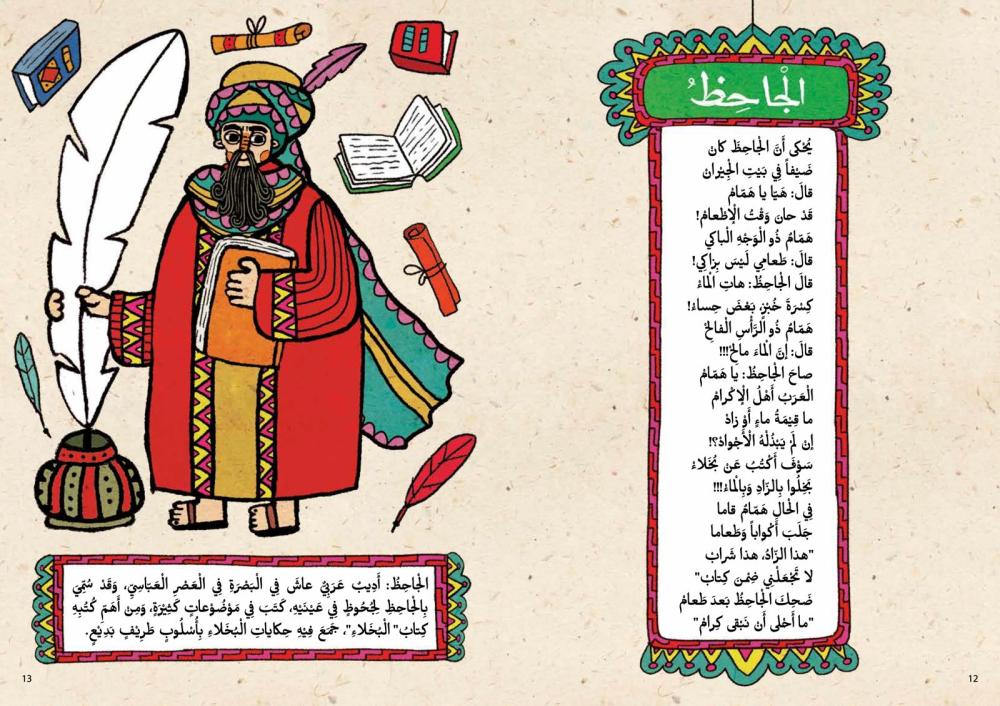 الْجاحِظُ
يُحْكى أَنَّ الْجاحِظَ كانْ
ضَيْفاً في بَيْتِ الْجِيْرانْ
قالَ: هَيّا يا هَمّامْ
قَدْ حانَ وَقْتُ الْإِطْعامْ!
هَمّامُ ذُو الْوَجْهِ الْباكي
قالَ: طَعامي لَيْسَ بِزاكي!
قالَ الْجاحِظُ: هاتِ الْماءْ
كِسْرَةَ خُبْزٍ، بَعْضَ حِساءْ!
هَمّامُ ذُو الرَّأْسِ الْفالِحْ
قالَ: إِنَّ الْماءَ مالِحْ!!!
صاحَ الْجاحِظُ: يا هَمّامْ
الْعَرَبُ أَهْلُ الْإِكْرامْ
ما قِيْمَةُ ماءٍ أَوْ زادْ
إِن لَمْ يَبْذُلْهُ الْأَجْوادْ؟!
سَوْفَ أَكْتُبُ عَنْ بُخَلاءْ
بَخِلُوا بِالزّادِ وَبِالْماءْ!!!
في الْحالِ هَمّامُ قاما
جَلَبَ أَكْواباً وَطَعاما
"هذا الزّادُ، هذا شَرابْ
لا تَجْعَلْني ضِمْنَ كِتابْ"
ضَحِكَ الْجاحِظُ بَعدَ طَعامْ
"ما أَحْلى أَن نَبْقى كِرامْ"
12
الْجاحِظُ: أَدِيبٌ عَرَبِيٌّ عاشَ في الْبَصْرَةِ في الْعَصْرِ الْعَبّاسِيِّ، وَقَدْ سُمِّيَ
بِالْجاحِظِ لِجُحُوظٍ في عَيْنَيْهِ، كَتَبَ في مَوْضُوْعاتٍ كَثِيْرَةٍ، وَمِنْ أَهَمِّ كُتُبِهِ
كِتابُ" الْبُخَلاءِ"، جَمَعَ فِيْهِ حِكاياتِ الْبُخَلاءِ بِأُسْلُوبٍ طَرِيْفٍ بَدِيْعٍ.
13